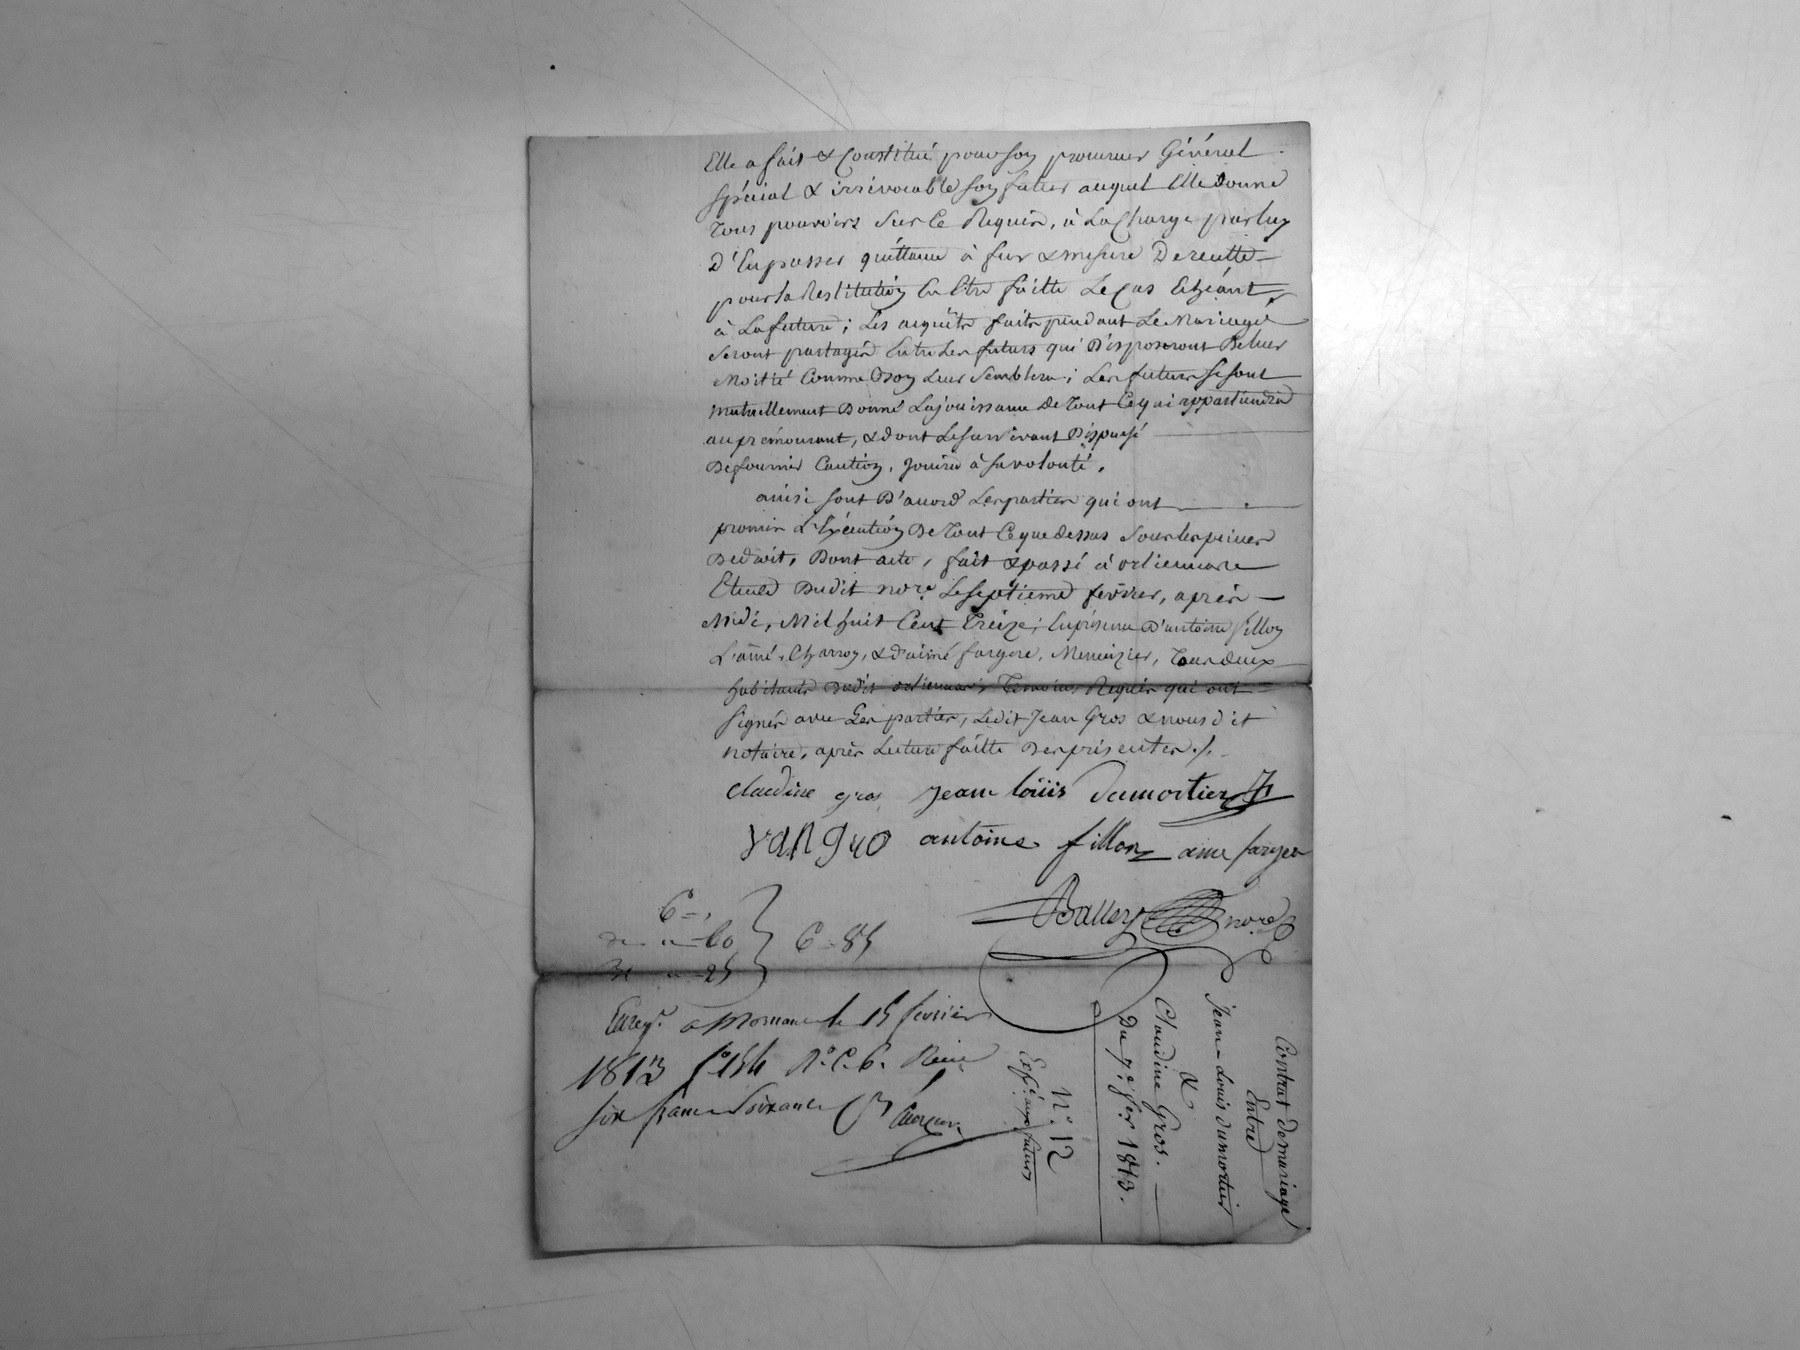 Elle a fait & Constitué pour son procureur Général
spécial & irrévocable son futur auquel Elle donne
Tous pouvoirs sur ce Requis, à La Charge par luy
D'En passer quittance à fur & mesure De recette
pour la Restitution En Etre faitte Le Cas Echéant
à La future ; Les acquêts faits pendant Le Mariage
seront partagés Entre Les futurs qui Disposeront De leur
Moitié Comme Bon Leur Semblera ; Les futurs se sont
mutuellement Donné La jouissance De Tout Ce qui appartiendra
au prémourant, & dont Le survivant Dispensé
De fournir Caution, jouira à sa volonté.
ainsi sont D'accord Les parties qui ont
promis L'Exécution De Tout Ce que dessus Sous les peines
De droit, Dont acte, fait & passé à orliennas
Etude Dudit nore. Le septieme février, après
Midi, Mil huit Cent Treize ; En présence D'antoine fillon
L'ainé, Charron, & d'aimé fargere, Menuizier, Tous deux
habitants Dudit orliennas, Témoins Requis qui ont
signés avec Les parties, Ledit Jean Gros & nous dit
notaire, après Lecture faitte Des présentes ./.
claudine gros jean loüis dumortier
antoine fillon aime
Ballery nore
6 = ,
60
25
6 - 85
Enregt. a Mornant le 15 février
1813 fo. 154 Ro. C. 6. Reçu
six francs soixante
Contrat de mariage
Entre
Jean-Louis dumortier
&
Claudine Gros.
Du 7e. fer. 1813.
No. 12
Expé. aux futurs